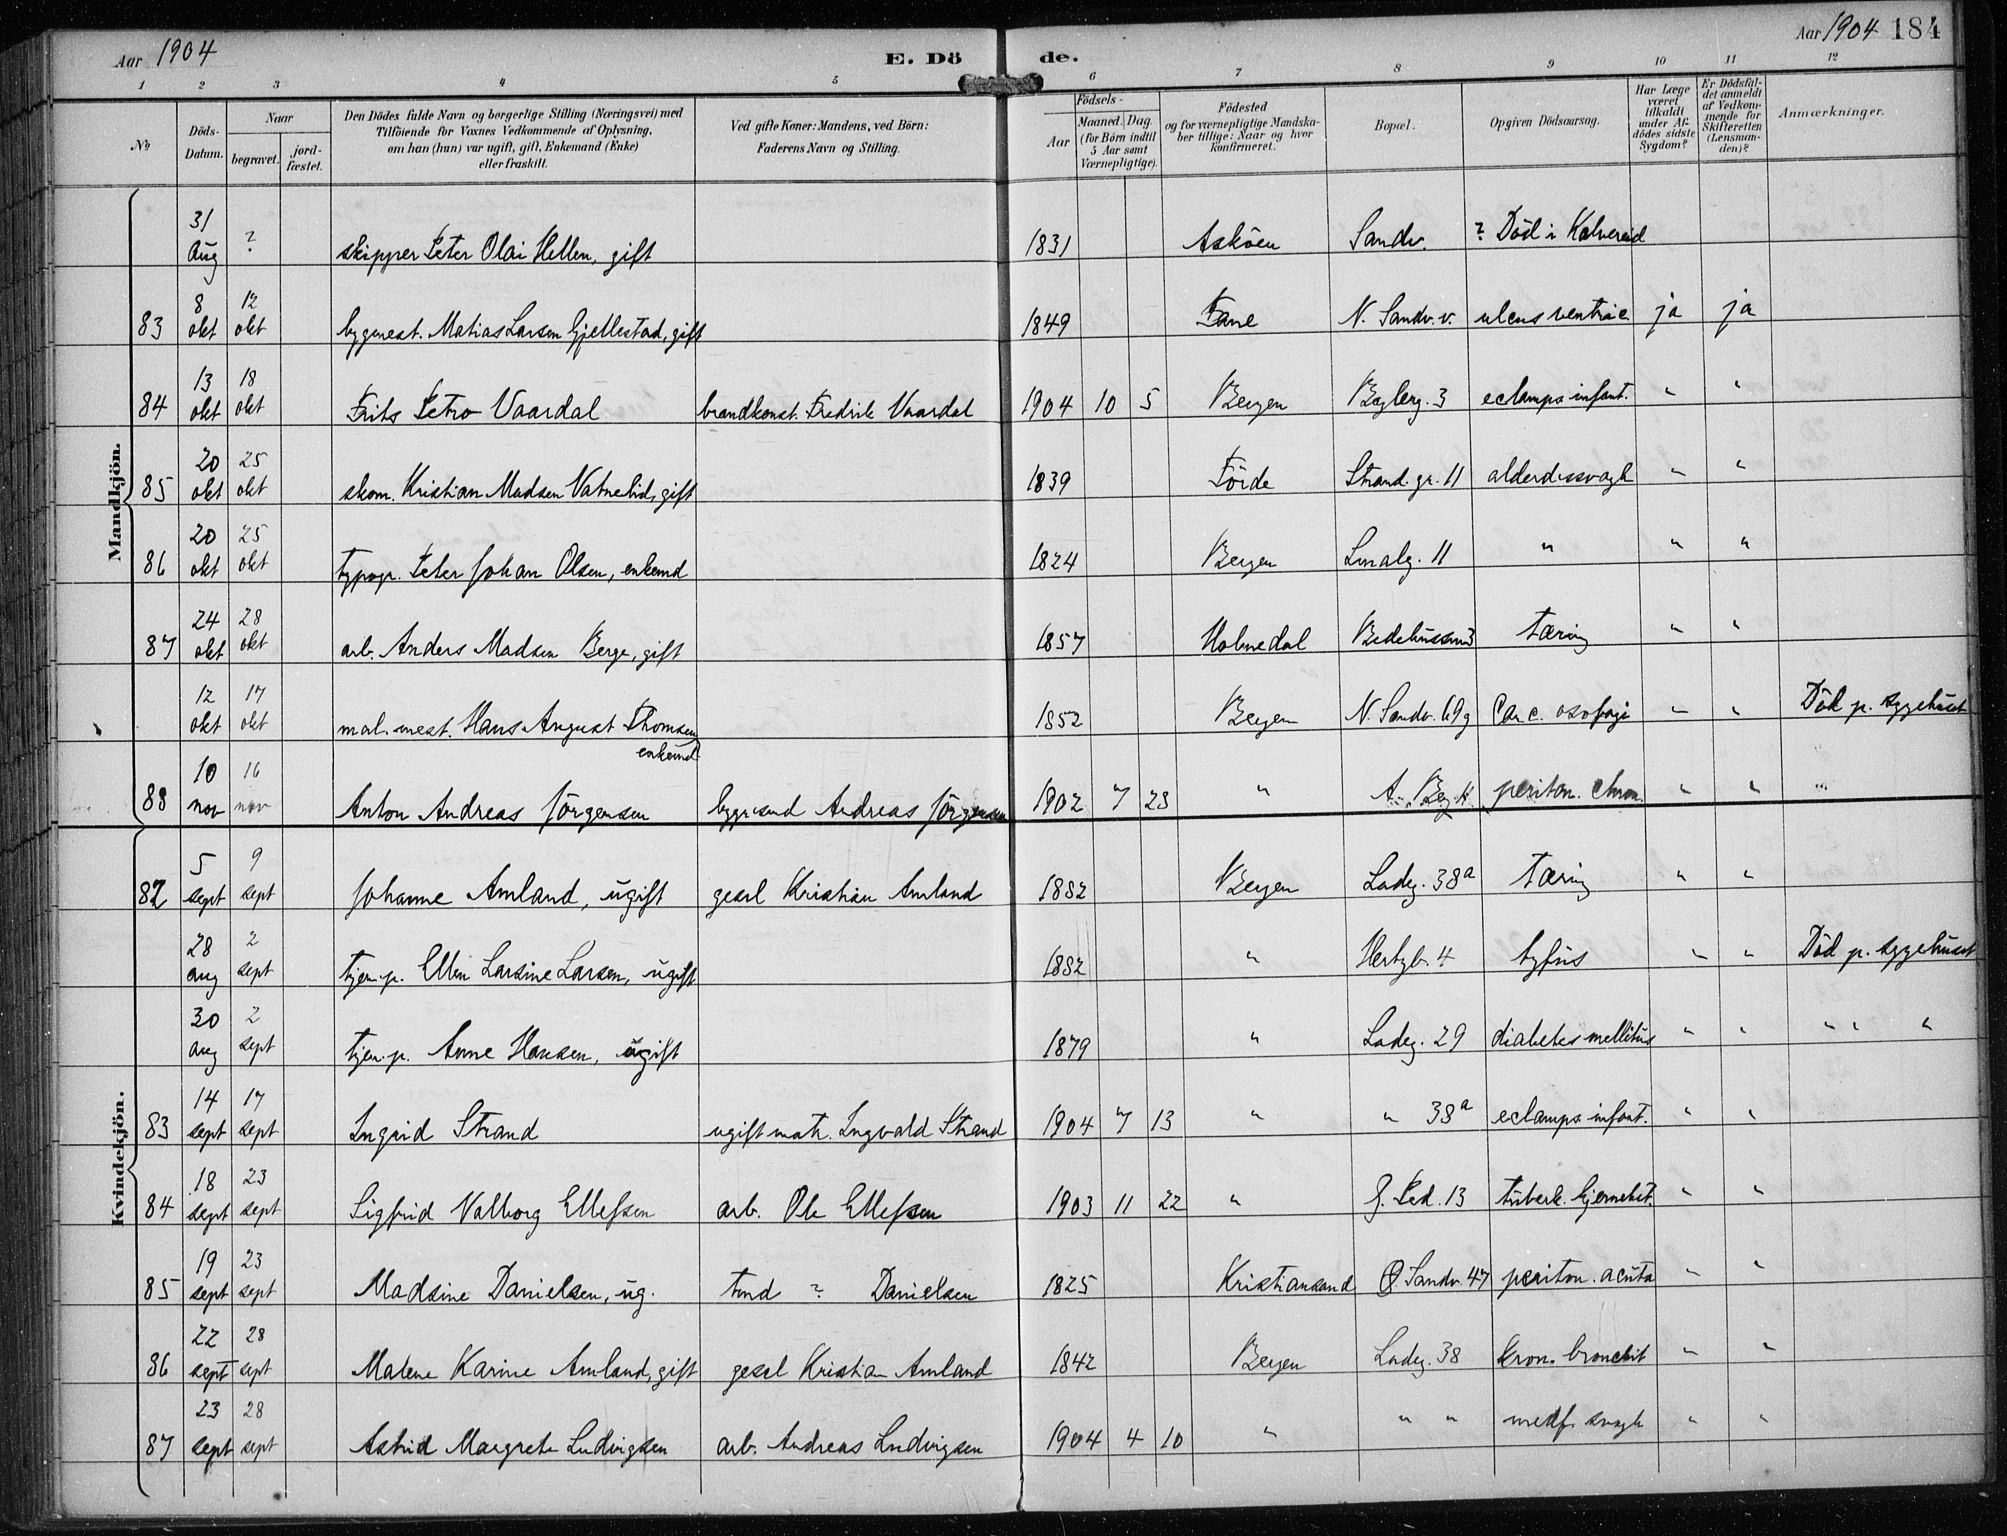 Aar 1904 E. Döde. Aar 1904 184
1 2 3 4 5 6 7 8 9 10 11 12
No Döds-Datum. Naar begravet. jordfæstet. Den Dödes fulde Navn og borgerlige Stilling (Næringsvei) med Tilföiende for Voxnes Vedkommende af Oplysning, om han (hun) var ugift, gift, Enkemand (Enke) eller fraskilt. Ved gifte Koner: Mandens, ved Börn: Faderens Navn og Stilling. Födsels- Aar Maaned. Dag. (for Börn indtil 5 Aar samt Værnepligtige). Födested og for værnepligtige Mandskaber tillige: Naar og hvor konfirmeret. Bopæl. Opgiven Dödsaarsag. Har Læge været tilkaldt under Afdödes sidste Sygdom? Er Dödsfaldet anmeldt af Vedkommende for Skifteretten (Lensmanden)? Anmærkninger.
Mandkjön.
31 Aug ? skipper Peter Olai Hellen, gift 1831 Asköen Sandv. ? Död i Kalvereid
83 8 okt 12 okt bygmest. Matias Larsen Gjellestad, gift 1849 Fane N. Sandv. v. ulcus ventric ja ja
84 13 okt 18 okt Frits Petro Vaardal brandkonst. Fredrik Vaardal 1904 10 5 Bergen 3 eclamps. infant. " "
85 20 okt 25 okt skom. Kristian Madsen Vatnelid, gift 1839 Förde Strand. gr. 11 alderdssvagh " "
86 20 okt 25 okt typogr. Peter Johan Olsen, enkemd 1824 Bergen 11 " " "
87 24 okt 28 okt arb. Anders Madsen Berge, gift 1857 Holmedal Bedehussm 3 Tæring " "
12 okt 17 okt mal. mest. Hans August Thomsen enkemd 1852 Bergen N. Sandv. 69 g Carc. osofagi " " Död p. sygehuset
88 10 nov 16 nov Anton Andreas Jörgensen bygmsnd Andreas Jörgensen 1902 7 23 " periton. chron. " " "
Kvindekjön.
82 5 sept 9 sept Johanne Amland, ugift gesel Kristian Amland 1882 Bergen Ladeg. 38a Tæring " "
28 aug 2 sept tjen. p. Ellen Larsine Larsen, ugift 1882 " Hertzb. 4 tyfus " " Död p. sygehuset
30 aug 2 sept tjen. p. Anne Hansen, ugift 1879 " Ladeg. 29 diabetes mellitus " " " "
83 14 sept 17 sept Ingrid Strand ugift matr. Ingvald Strand 1904 7 13 " " 38a eclamps. infant. " "
84 18 sept 23 sept Sigfrid Valborg Ellefsen arb. Ole Ellefsen 1903 11 22 " 13 tuberk. hjernebet. " "
85 19 sept 23 sept Madsine Danielsen, ug. tmd ? Danielsen 1825 Kristiansand Ö. Sandv. 47 periton. acuta " "
86 22 sept 28 sept Malene Karine Amland, gift gesel Kristian Amland 1842 Bergen Ladeg. 38 kron. bronchit " "
87 23 sept 28 sept Astrid Margrete Ludvigsen arb. Andreas Ludvigsen 1904 4 10 " " " medf. svagh " "